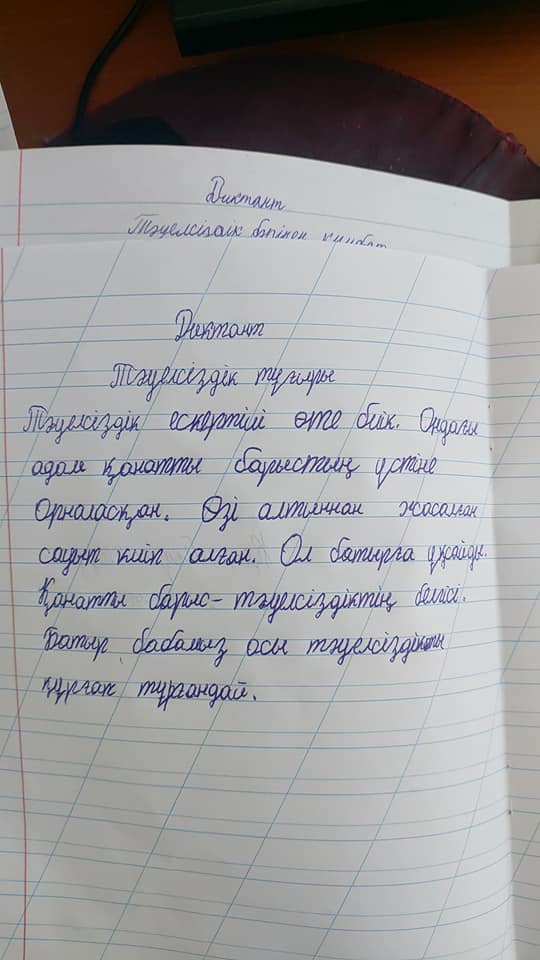 Диктант
Тәуелсіздік бәрінен қымбат
Диктант
Тәуелсіздік тұғыры
Тәуелсіздік ескерткіші өте биік. Ондағы
адам қанатты барыстың үстіне
Орналасқан. Өзі алтыннан жасалған
сауыт киіп алған. Ол батырға ұқсайды.
Қанатты барыс- тәуелсіздіктің белгісі.
Батыр бабамыз осы тәуелсіздікті
құрғақ тұрғандай.